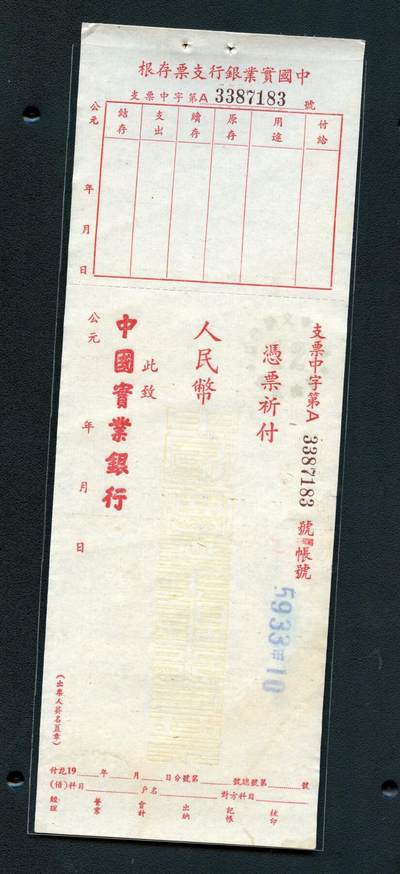 中國實業銀行支票存根
支票中字第A 3387183 號
付給
用途
原存
續存
支出
結存
公元 年 月 日
支票中字第A 3387183 號 帳號
5933 10
憑票祈付
人民幣
此致
中國實業銀行
公元 年 月 日
(出票人簽名蓋章)
付訖19 年 月 日分號第 號總號第 號
(借)科目 戶名 對方科目
經理 營業 會計 出納 記帳 核印